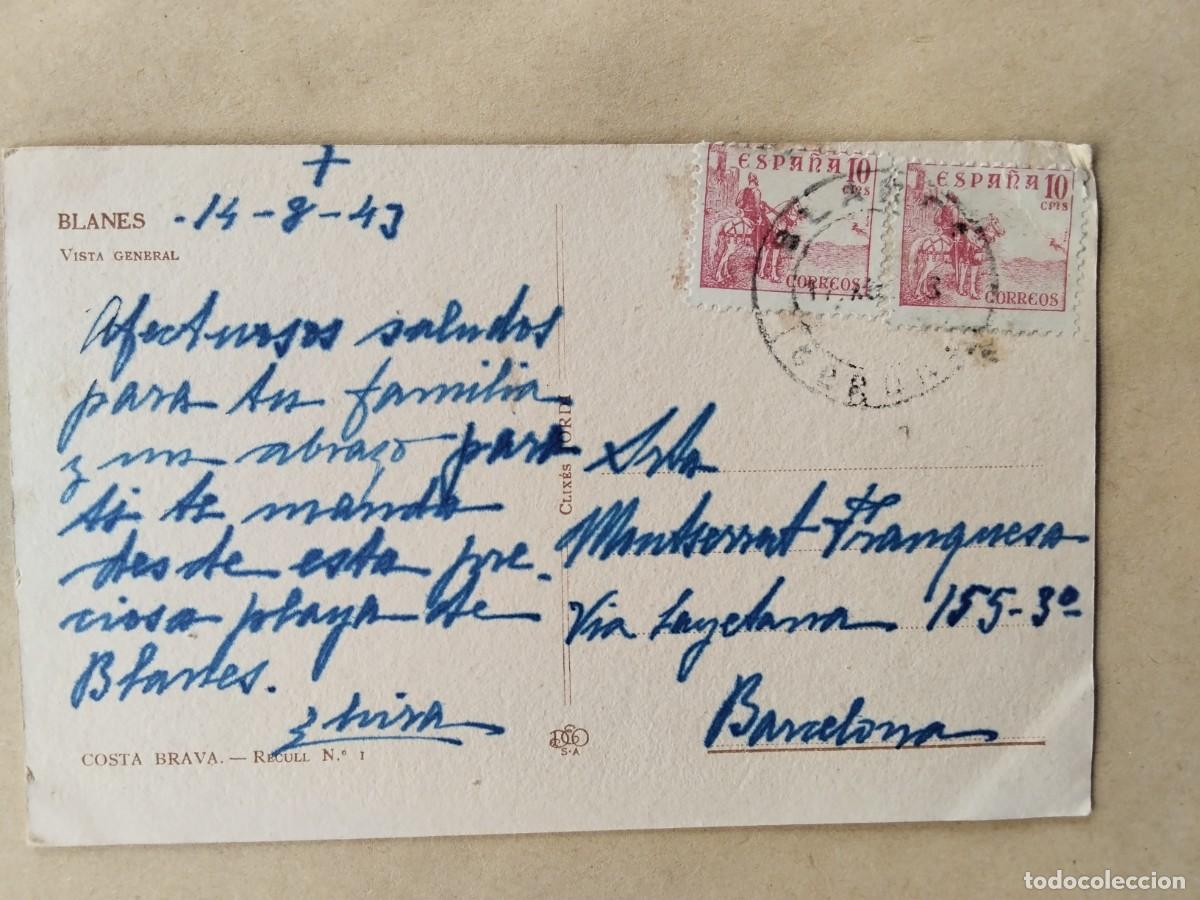 BLANES
VISTA GENERAL
14-8-43
Afectuosos saludos
para tu familia
y un abrazo para
ti te manda
desde esta pre-
ciosa playa de
Blanes.
COSTA BRAVA. — RECULL N.º 1
CLIXÉS JORDI
S.A
ESPAÑA 10
CTS
CORREOS
ESPAÑA 10
CTS
CORREOS
Srta
Montserrat Franquesa
Via Layetana 155-3º
Barcelona
todocoleccion